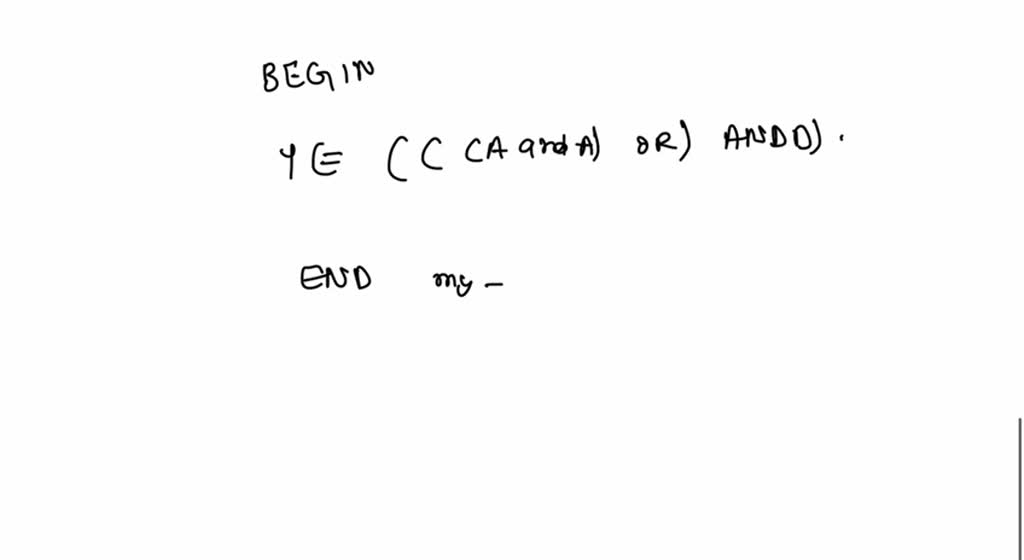 BEGIN
Y ∈ ( ( (A and A) OR) AND D) .
END my -